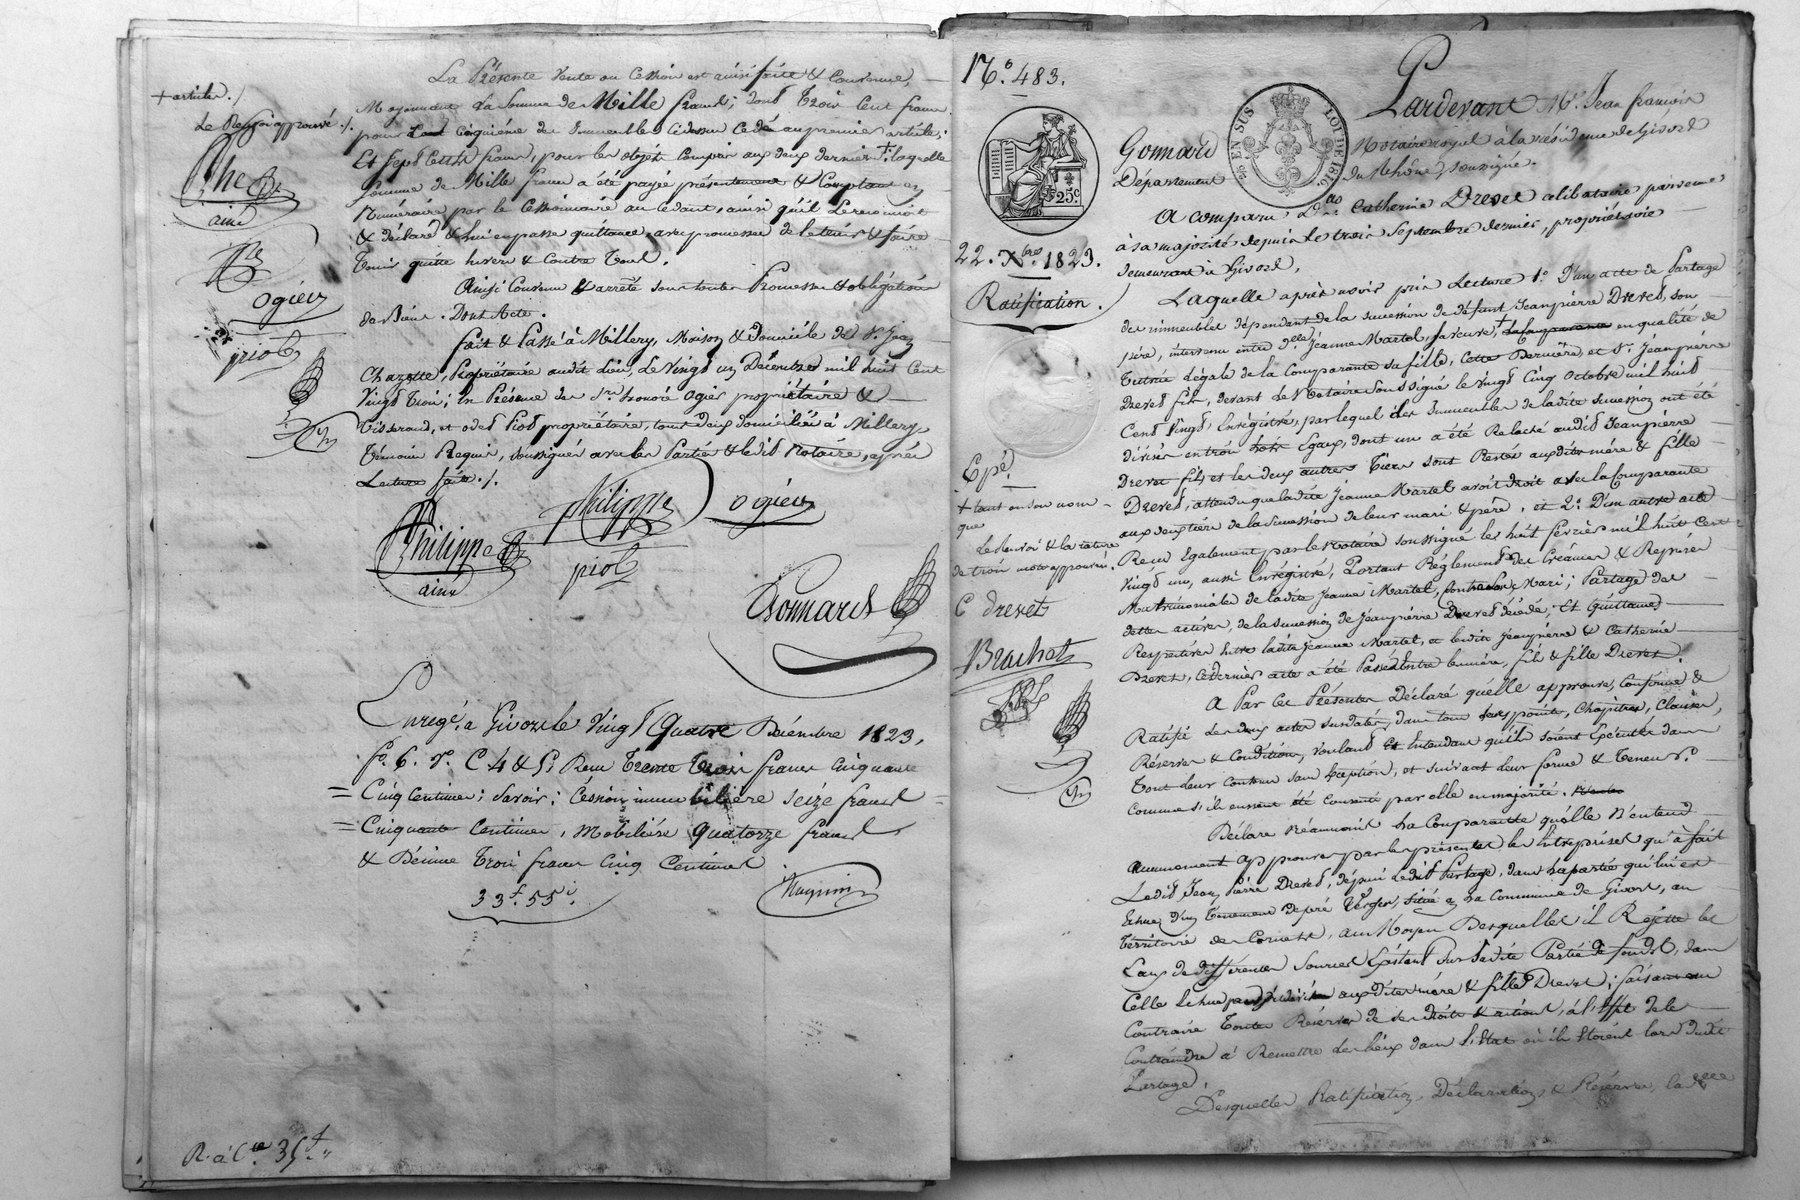 La Présente vente ou Cession est ainsi faite & Convenue,
Moyennant la Somme de Mille francs; dont Trois Cent francs
pour le cinquième des Immeubles cidessus cédé au premier article;
Et Sept Cents francs, pour les objets Compris aux deux derniers + laquelle
Somme de Mille francs a été payée présentement & Comptant en
Numéraire par le Cessionnaire au cédant, ainsi qu'il le reconnoit
& déclare & lui en passe quittance, avec promesse de le tenir & faire
tenir quitte envers & Contre Tous.
Ainsi Convenu & arrêté sous toutes Promesses & obligations
de Biens. Dont Acte.
fait & Passé à Millery, Maison & Domicile de Sr. Jean
Chazotte, Propriétaire audit Lieu, Le Vingt un Décembre mil huit Cent
Vingt Trois; En Présence des Srs. honoré Ogier propriétaire &
Tisserand, et odet Piot propriétaire, tous deux domiciliés à Millery
Témoins Requis, soussignés avec les Parties & ledit Notaire, après
Lecture faite./.
+ article./
Le Renvoi approuvé./.
Phe
ainé
Ogier
piot
Philippe
ogier
Philippe
ainé
piot
Gonnard
Enregé. à Givors le Vingt Quatre Décembre 1823,
fo. 6. Vo. C 4 & 5; Reçu Trente Trois francs Cinquante
= Cinq Centimes; Savoir; Cession immobilière seize francs =
= Cinquante Centimes, Mobilière Quatorze francs
& Décime Trois francs Cinq Centimes
33f. 55c.
R. à Cre. 35f.
No. 483.
25 EN SUS
LOI DE 1816
25c.
22. Xbre. 1823.
Ratification.
Expé.
+ tant en son nom
que
Le Renvoi & la rature
de trois mots approuvés.
C Drevet
Brachet
Pardevant Me. Jean françois
Gonnard Notaire royal à la résidence de Givors
Département du Rhône, soussigné.
A comparu, Dlle. Catherine Drevet célibataire parvenue
à sa majorité depuis le trois Septembre dernier, propriétaire
demeurant à Givors,
Laquelle après avoir pris Lecture 1o. D'un acte de Partage
des immeubles dépendants de la succession de défunt Jeanpierre Drevet, son
père, intervenu entre dlle. Jeanne Martel, sa veuve, + la comparante en qualité de
Tutrice Légale de la Comparante sa fille, Cette Dernière, et Sr. Jeanpierre
Drevet fils, devant le Notaire Soussigné le vingt Cinq Octobre mil huit
Cent Vingt, Enrégistré, par lequel les Immeubles de ladite succession ont été
divisés en trois lots Egaux, dont un a été Relaché audit Jeanpierre
Drevet fils et les deux autres Tiers sont Restés auxdites mère & fille
Drevet, attendu que ladite Jeanne Martel avoit droit avec la Comparante
aux deux tiers de la succession de leur mari & père; et 2o. D'un autre acte
Reçu Également par le Notaire soussigné les huit février mil huit Cent
Vingt un, aussi Enrégistré, Portant Réglement des Créances & Reprises
Matrimoniales de ladite Jeanne Martel, Mari; Partage des
dettes actives, de la succession de Jeanpierre Drevet décédé; Et Quittances
Respectives Entre ladite Jeanne Martel, et lesdits Jeanpierre & Catherine
Drevet, Cedernier acte a été Passé Entre les mère, fils & fille Drevet.
A Par les Présentes Déclaré qu'elle approuve, Confirme &
Ratifie les deux actes susdatés, dans tous leurs points, Chapitres, Clauses,
Réserves & Conditions, voulant Et Entendant qu'ils soient Exécutés dans
Tout leur Contenu sans Exeption, et suivant leur forme & Teneur.
Comme s'ils eussent été Consentis par elle en majorité.
Déclare Néanmoins la Comparante qu'elle N'entend
aucunement approuver par les présentes les Entreprises qu'à fait
Ledit Jean Pierre Drevet, depuis Ledit Partage, dans la partie qui lui est
Echue d'un Tenement de pré Verger, situé en la Commune de Givors, au
Territoire des Cornets, au Moyen Desquelles il Rejette les
Eaux de differentes sources Existant Sur ladite Partie de fonds, dans
Celle Echue auxdites mère & fille Drevet; faisant au
Contraire Toutes Réserves de ses droits & actions, à l'Effet de le
Contraindre à Remettre Les lieux dans l'Etat où ils étoient lors dudit
Partage.
Desquelles Ratification, Déclaration & Réserves, la